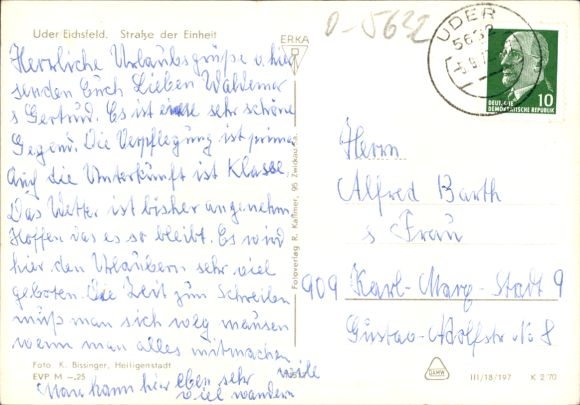 Uder Eichsfeld. Straße der Einheit
ERKA
D-5632
UDER
5632
DEUTSCHE
DEMOKRATISCHE REPUBLIK
10
Herzliche Urlaubsgrüße v. hier
senden Euch Lieben Waldemar
s Gertrud. Es ist eine sehr schöne
Gegend. Die Verpflegung ist prima
Auch die Unterkünft ist Klasse
Das Wetter ist bisher angenehm
Hoffen das es so bleibt. Es wird
hier den Urlaubern sehr viel
geboten. Die Zeit zum Schreiben
müß man sich weg mausen
wenn man alles mitmachen
will
Man kann hier eben sehr
viel wandern
Fotoverlag R. Kallmer, 95 Zwickau
Herrn
Alfred Barth
s Frau
909 Karl-Marx-Stadt 9
Gustav-Adolfstr No 8
Foto: K. Bissinger, Heiligenstadt
EVP M –.25
DAMW
III/18/197 K 2 70